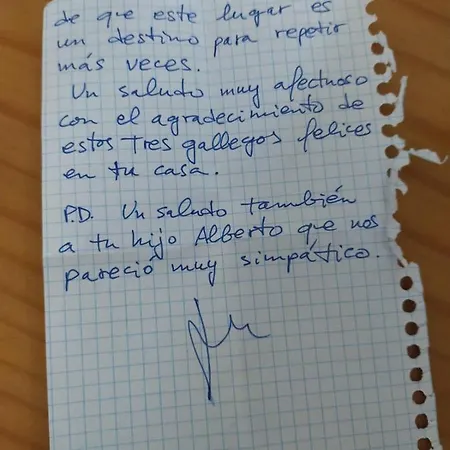 de que este lugar es
un destino para repetir
más veces.
Un saludo muy afectuoso
con el agradecimiento de
estos tres gallegos felices
en tu casa.
P.D. Un saludo también
a tu hijo Alberto que nos
pareció muy simpático.